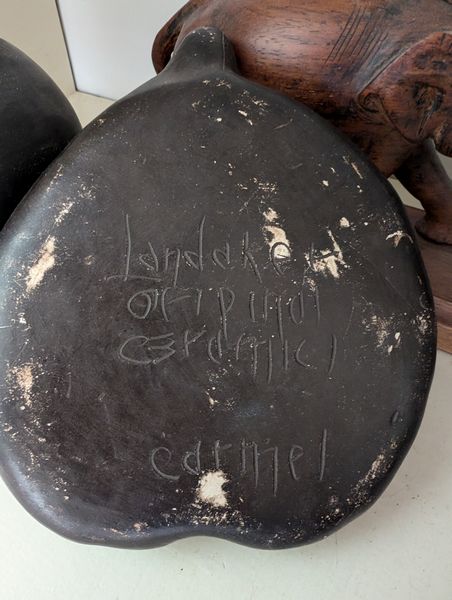 Landaker
original
ceramics
carmel